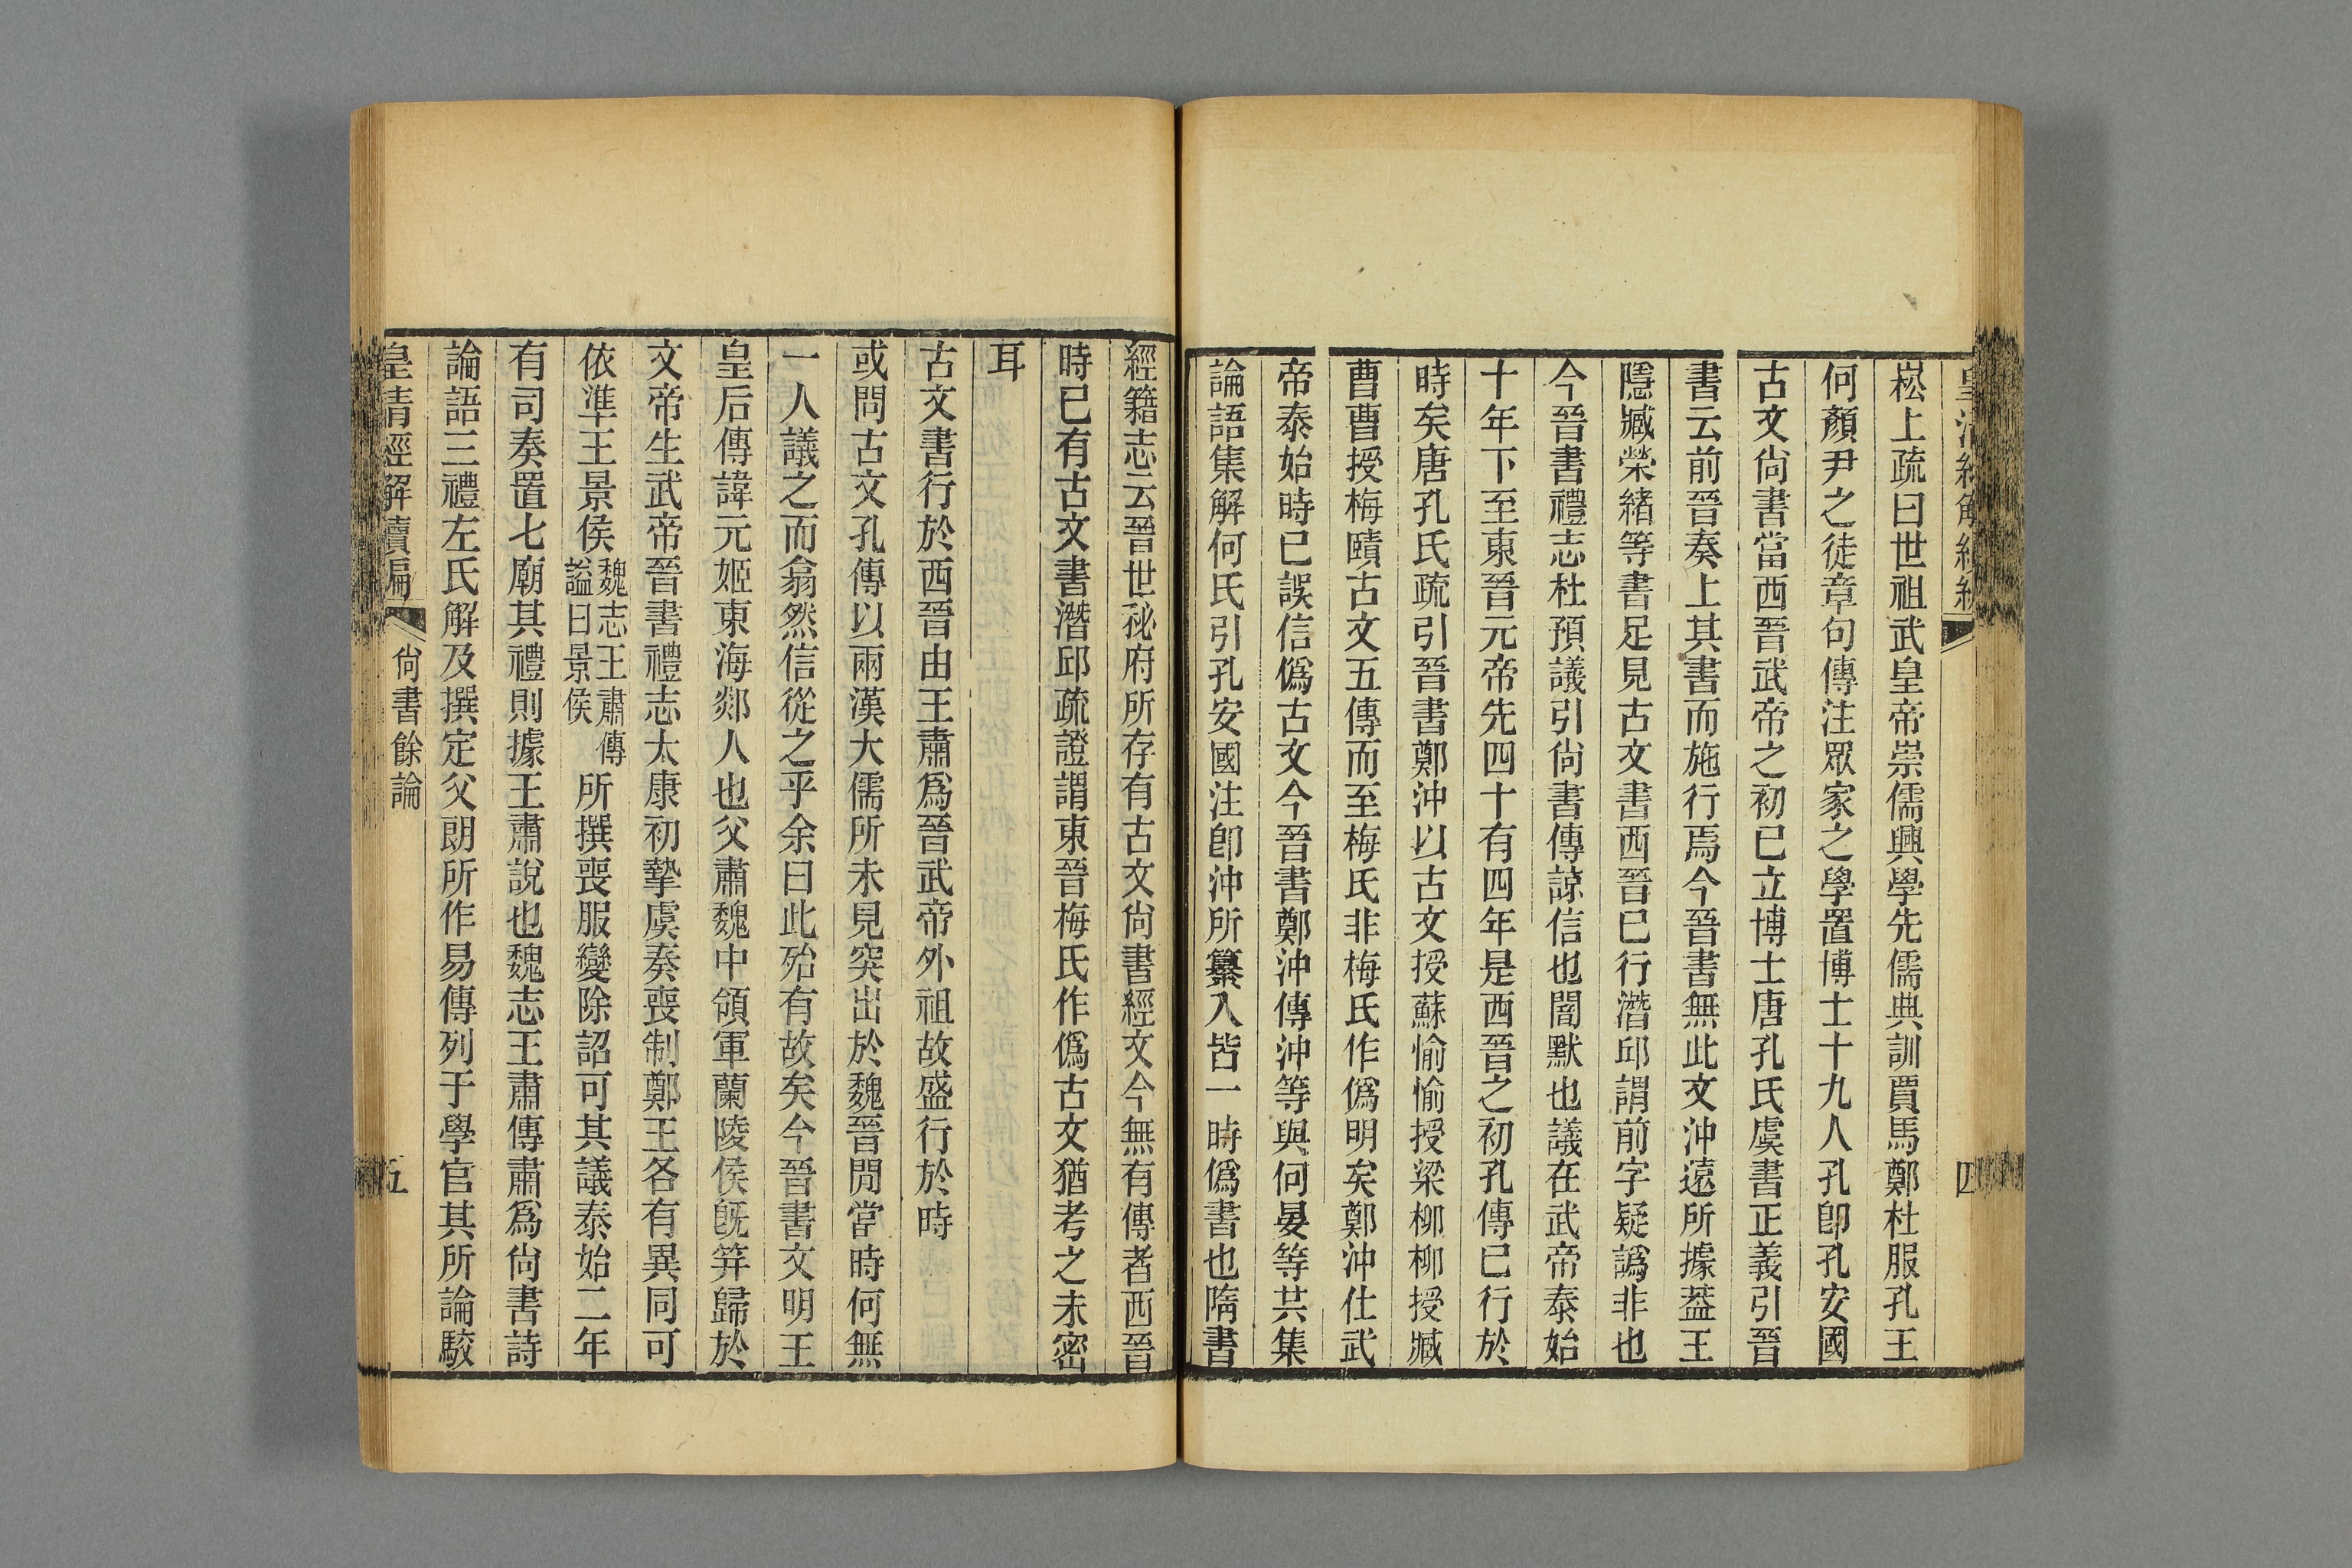 皇清經解續編
四
崧上疏曰世祖武皇帝崇儒興學先儒典訓賈馬鄭杜服孔王
何顏尹之徒章句傳注眾家之學置博士十九人孔卽孔安國
古文尙書當西晉武帝之初已立博士唐孔氏虞書正義引晉
書云前晉奏上其書而施行焉今晉書無此文沖遠所據葢王
隱臧榮緒等書足見古文書西晉已行潛邱謂前字疑譌非也
今晉書禮志杜預議引尙書傳諒信也闇默也議在武帝泰始
十年下至東晉元帝先四十有四年是西晉之初孔傳已行於
時矣唐孔氏疏引晉書鄭沖以古文授蘇愉愉授梁柳柳授臧
曹曹授梅賾古文五傳而至梅氏非梅氏作僞明矣鄭沖仕武
帝泰始時已誤信僞古文今晉書鄭沖傳沖等與何晏等共集
論語集解何氏引孔安國注卽沖所纂入皆一時僞書也隋書
經籍志云晉世祕府所存有古文尙書經文今無有傳者西晉
時已有古文書潛邱疏證謂東晉梅氏作僞古文猶考之未密
耳
古文書行於西晉由王肅爲晉武帝外祖故盛行於時
或問古文孔傳以兩漢大儒所未見突出於魏晉閒當時何無
一人議之而翕然信從之乎余曰此殆有故矣今晉書文明王
皇后傳諱元姬東海郯人也父肅魏中領軍蘭陵侯旣筓歸於
文帝生武帝晉書禮志太康初摯虞奏喪制鄭王各有異同可
依準王景侯魏志王肅傳諡曰景侯所撰喪服變除詔可其議泰始二年
有司奏置七廟其禮則據王肅說也魏志王肅傳肅爲尙書詩
論語三禮左氏解及撰定父朗所作易傳列于學官其所論駮
皇清經解續編
尙書餘論
五